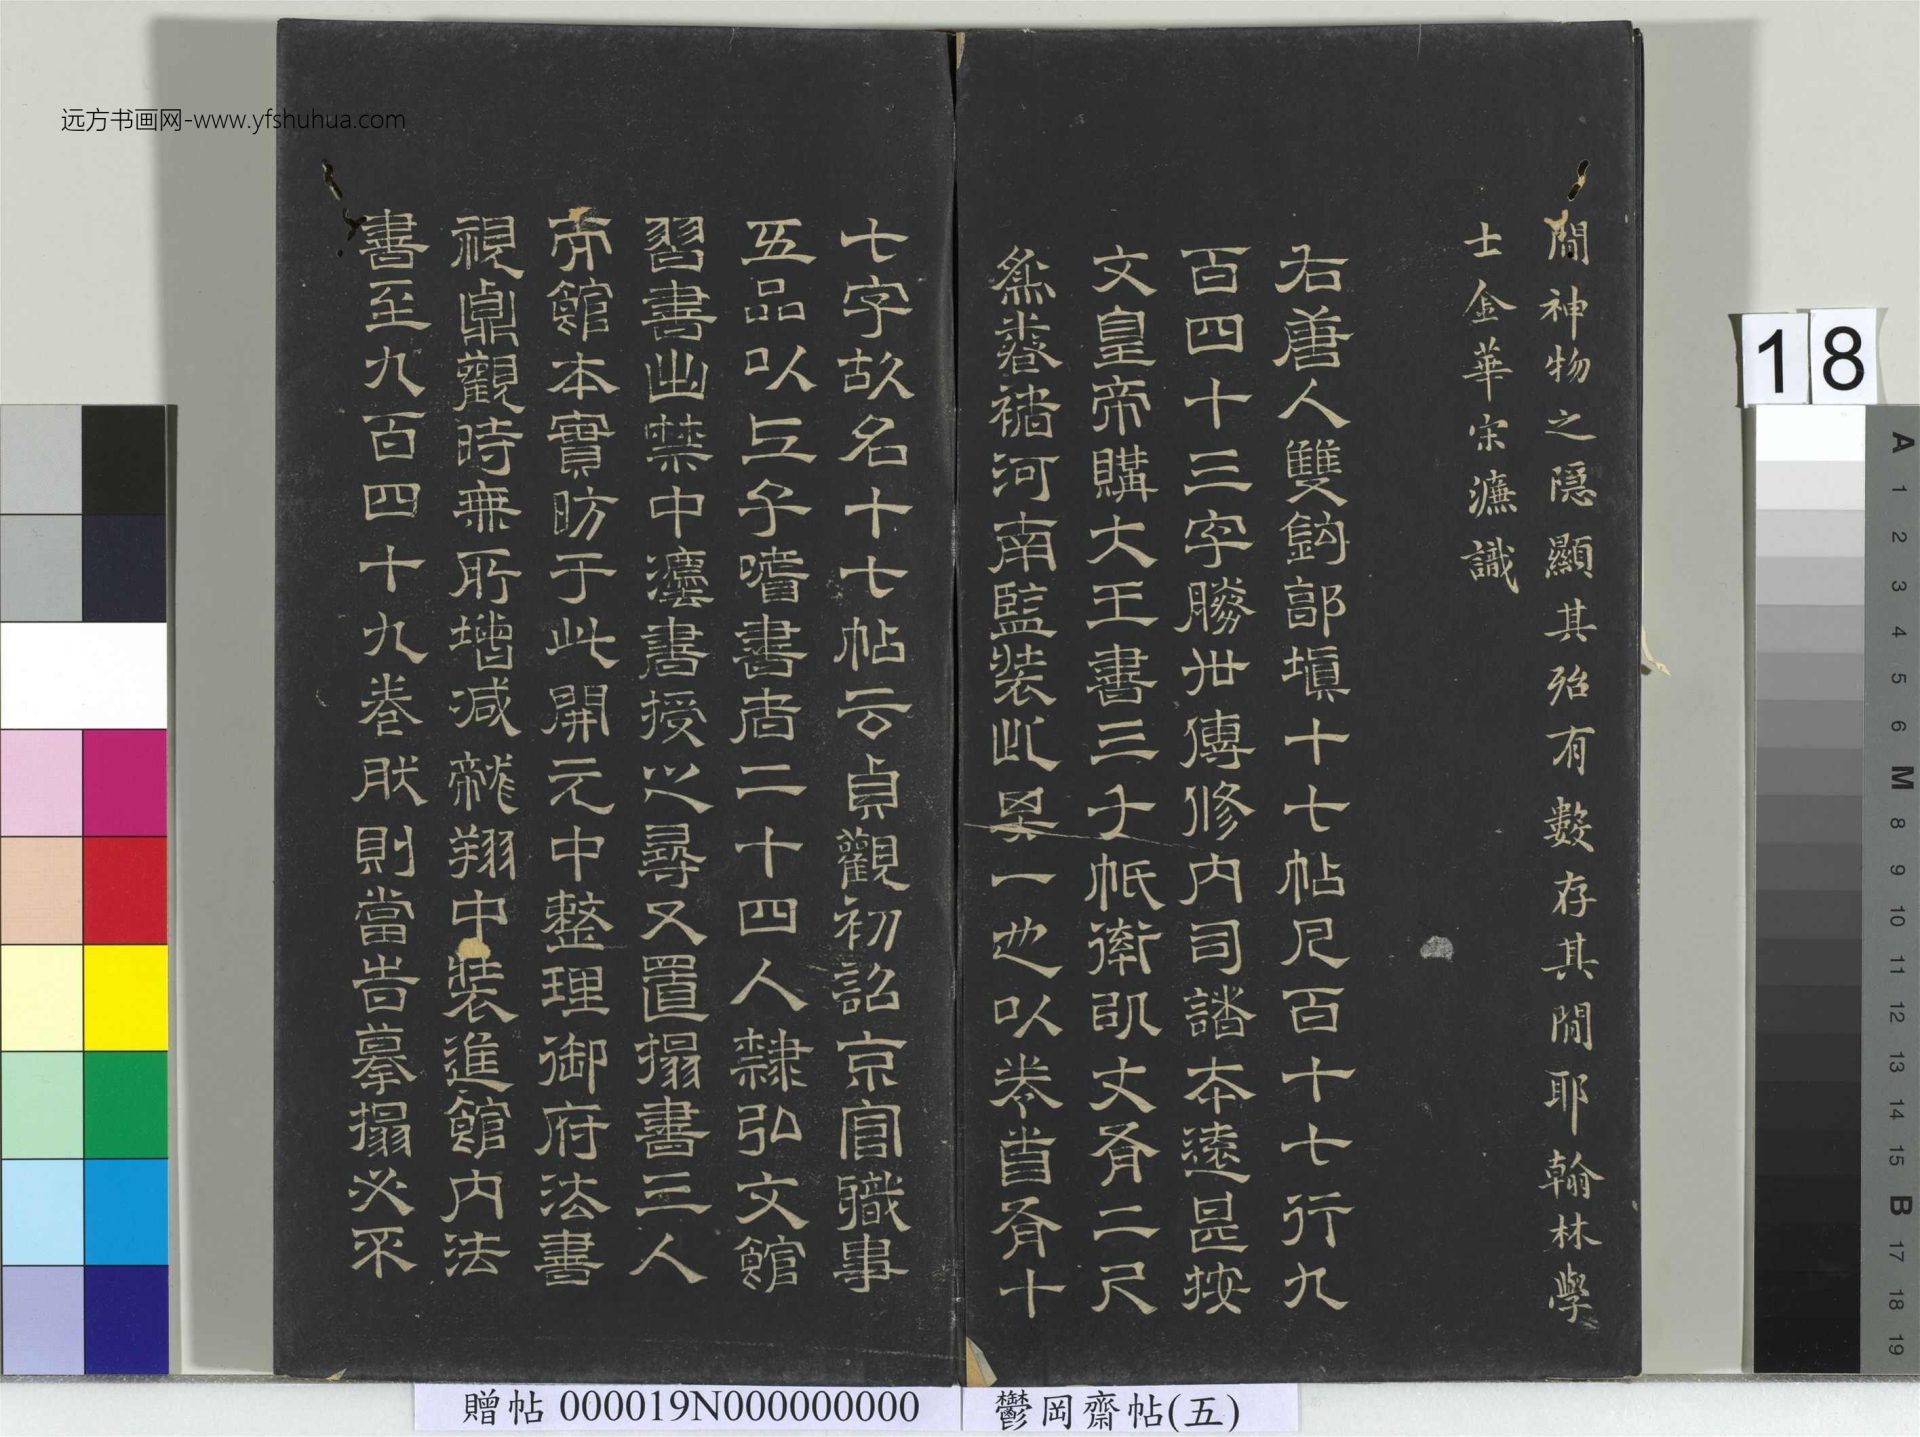 远方书画网-www.yfshuhua.com
間神物之隠顯其殆有數存其間耶翰林學
士金華宋濂識
右唐人雙鉤部填十七帖凡百十七行九
百四十三字勝卅傳修内司諮本遠甚按
文皇帝購大王書三千帋率以丈有二尺
為卷褚河南監裝此其一也以卷首有十
七字故名十七帖云貞觀初詔京官職事
五品以上子嗜書者二十四人隸弘文館
習書出禁中灋書授之尋又置搨書三人
館本實昉于此開元中整理御府法書
視鼎觀時無所增減龍翔中裝進館内法
書至九百四十九卷肰則當時摹搨必不
18
A 1 2 3 4 5 6 M 8 9 10 11 12 13 14 15 B 17 18 19
贈帖 000019N000000000
鬱岡齋帖(五)